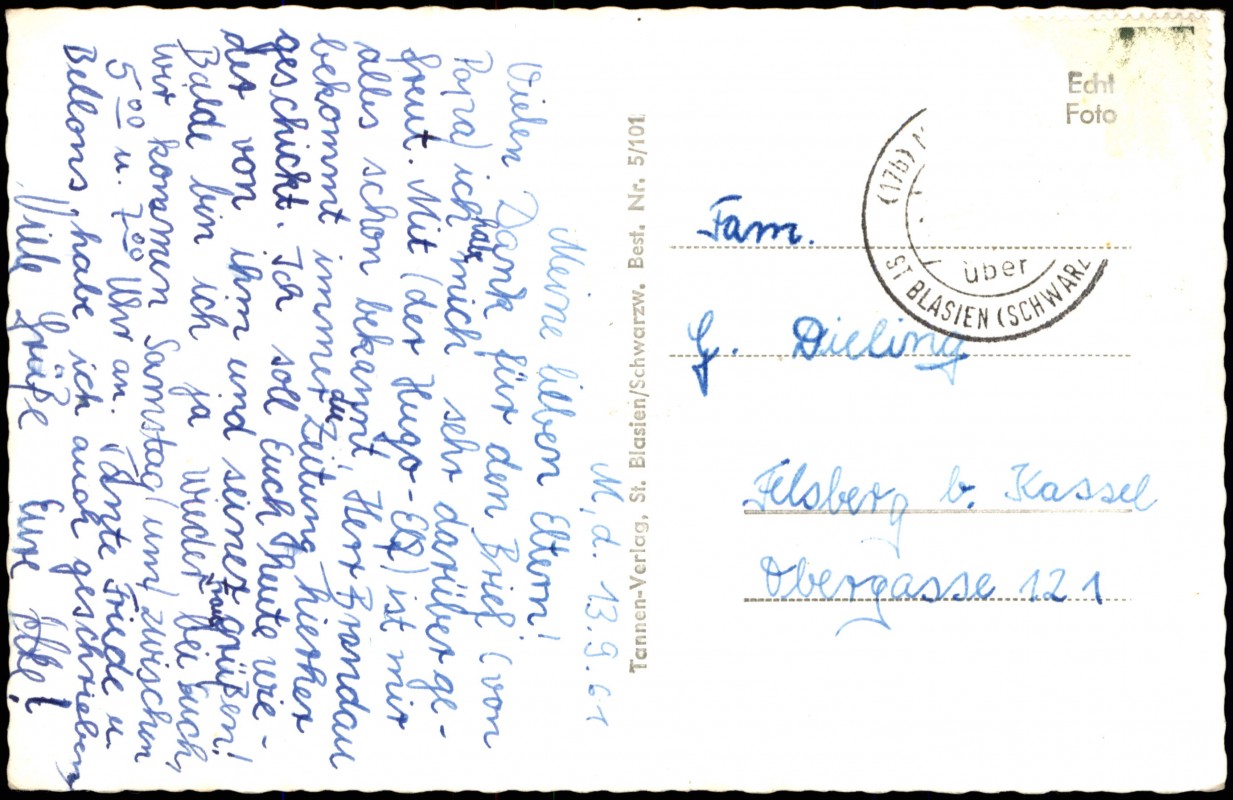 M, d. 13.9.61
Meine lieben Eltern!
Vielen Dank für den Brief (von
Papa) ich habe mich sehr darüber ge-
freut. Mit (der Hugo-) ist mir
alles schon bekannt, Herr Brandau
bekommt immer die Zeitung hierher
geschickt. Ich soll Euch heute wie-
der von ihm und seiner Frau grüßen!
Balde bin ich ja wieder bei euch,
wir kommen Samstag (um) zwischen
5 00 u. 7 00 Uhr an. Tante Friede u.
Bellons, habe ich auch geschrieben
Viele Grüße Eure
Tannen-Verlag, St. Blasien/Schwarzw. Best. Nr. 5/101
Echt
Foto
(17b)
über
ST BLASIEN (SCHWARZ
Fam.
G. Dieling
Felsberg b. Kassel
Obergasse 121